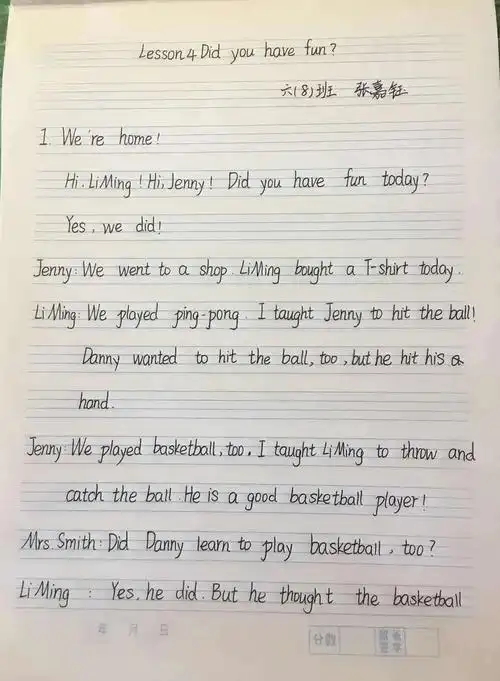 Lesson 4 Did you have fun?
六(8)班 张嘉钰
1. We're home!
Hi, LiMing! Hi, Jenny! Did you have fun today?
Yes, we did!
Jenny: We went to a shop. LiMing bought a T-shirt today.
Li Ming: We played ping-pong. I taught Jenny to hit the ball!
Danny wanted to hit the ball, too, but he hit his
hand.
Jenny: We played basketball, too. I taught LiMing to throw and
catch the ball. He is a good basketball player!
Mrs. Smith: Did Danny learn to play basketball, too?
Li Ming : Yes, he did. But he thought the basketball
年 月 日 分数